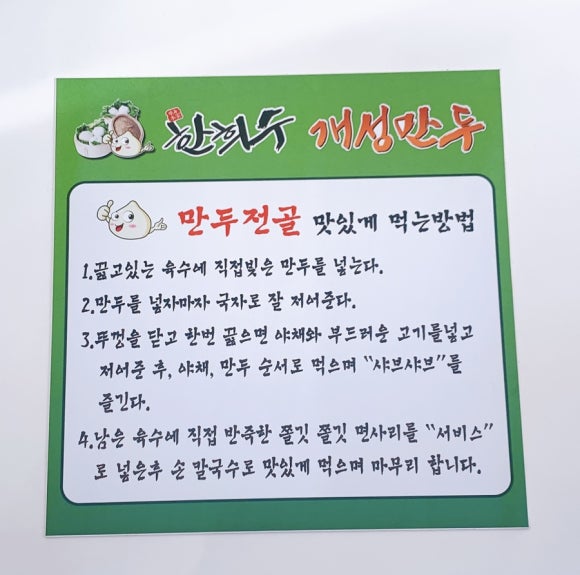 한희수 개성만두
만두전골 맛있게 먹는방법
1.끓고있는 육수에 직접빚은 만두를 넣는다.
2.만두를 넣자마자 국자로 잘 저어준다.
3.뚜껑을 닫고 한번 끓으면 야채와 부드러운 고기를넣고
저어준 후, 야채, 만두 순서로 먹으며 “샤브샤브”를
즐긴다.
4.남은 육수에 직접 반죽한 쫄깃 쫄깃 면사리를 “서비스”
로 넣은후 손 칼국수로 맛있게 먹으며 마무리 합니다.